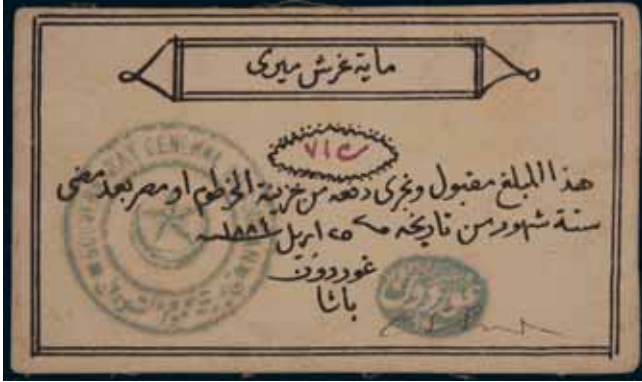 ماية غرش ميرى
هذا المبلغ مقبول ونجرى دفعه من خزينة الخرطوم او مصر بعد مضى
ستة شهور من تاريخه ٢٥ ابريل ١٨٨٤ سنه
غوردون
باشا